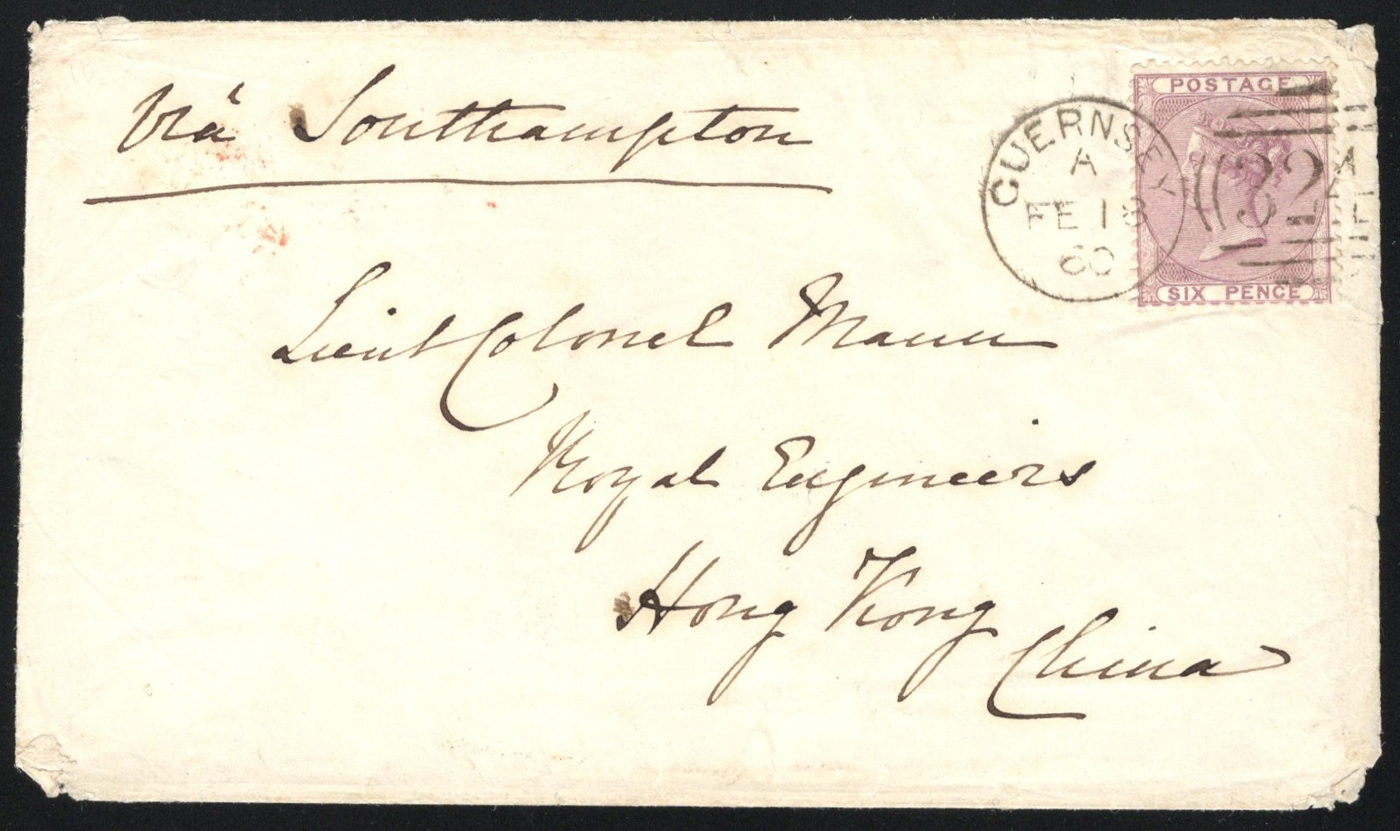 Viá Southampton
POSTAGE
GUERNSEY
A
FE 18
60
SIX PENCE
Lieut Colonel Mann
Royal Engineers
Hong Kong
China